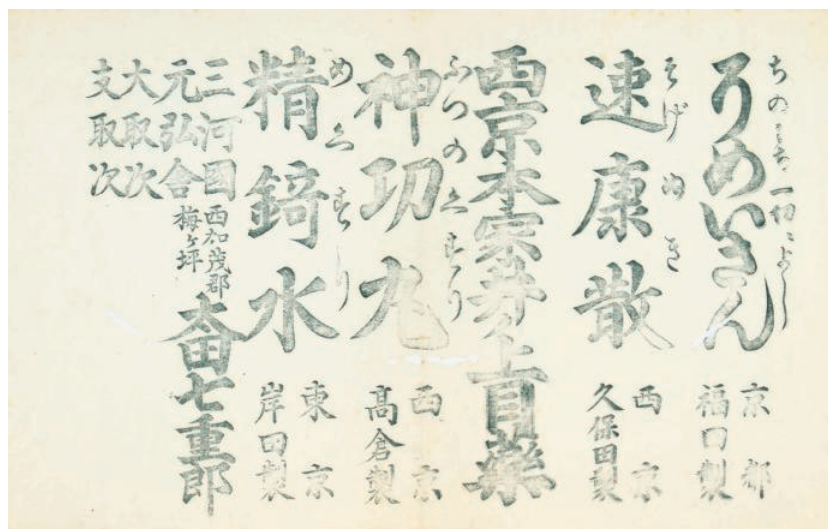 ちのみち一切ニよし
うめいさん
京都
福田製
そげぬき
速康散
西京
久保田製
西京本家井上目藥
ふつのくすり
神功丸
西京
髙倉製
めくすり
精錡水
東京
岸田製
三河国
元弘合
大取次
支取次
西加茂郡
梅ヶ坪
太田七重郎